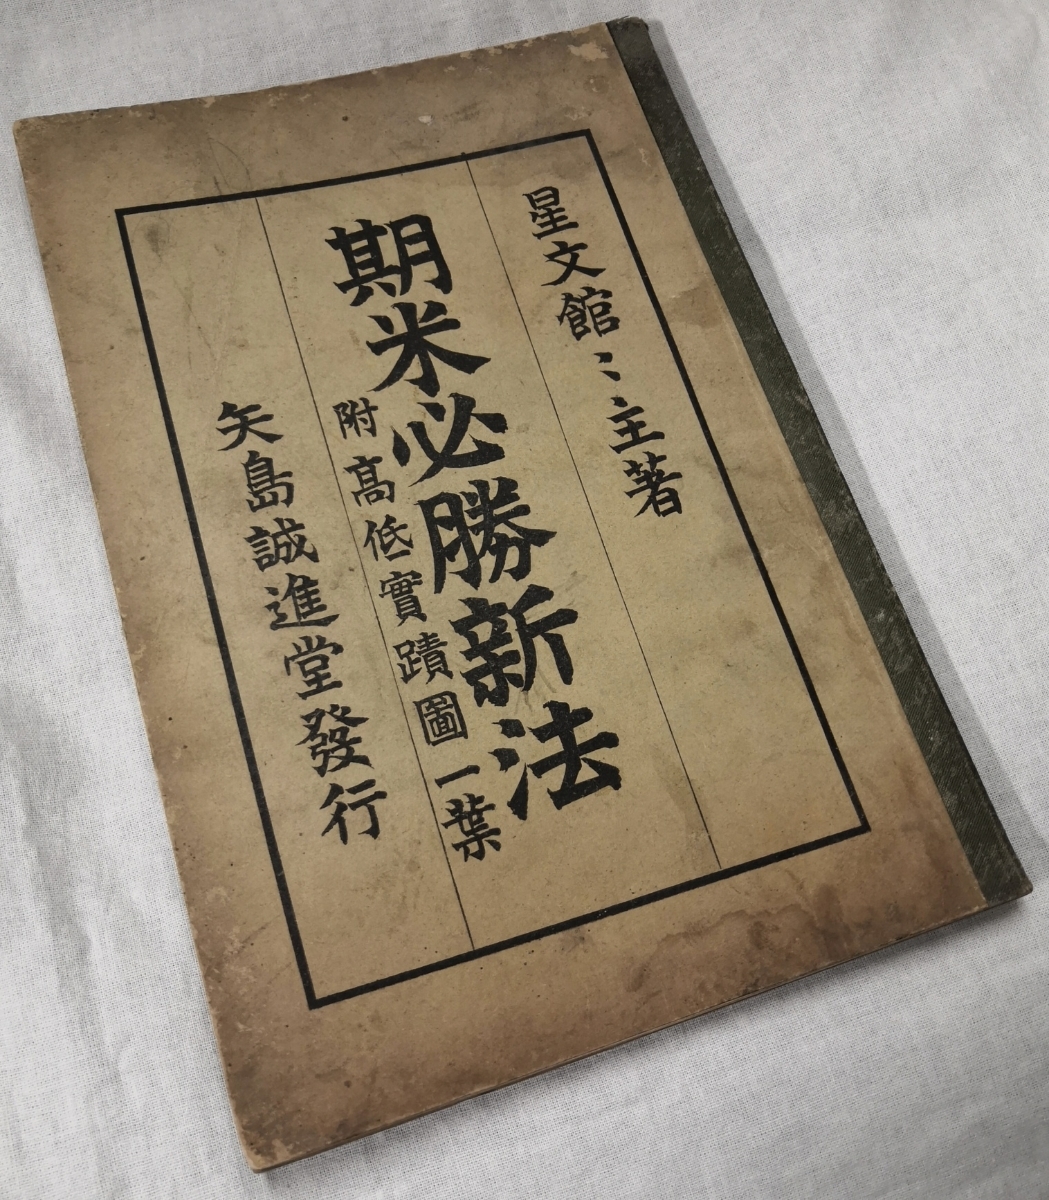 星文館〻主著
期米必勝新法
附高低實蹟圖一葉
矢島誠進堂發行